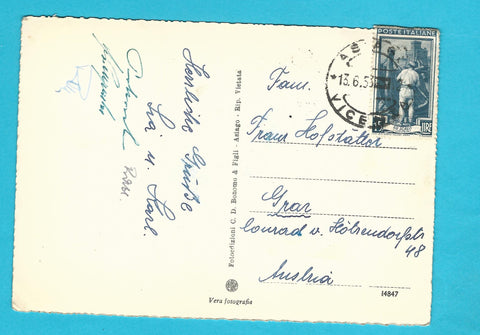 Herzliche Grüße
Lia u. Karl.
Fotoedizioni C. D. Bonomo & Figli - Asiago - Rip. Vietata
POSTE ITALIANE
LIRE
13.6.53
VICE
Fam.
Franz Hofstätter
Graz
Conrad v. Hötzendorfstr
48
Austria
14847
Vera fotografia